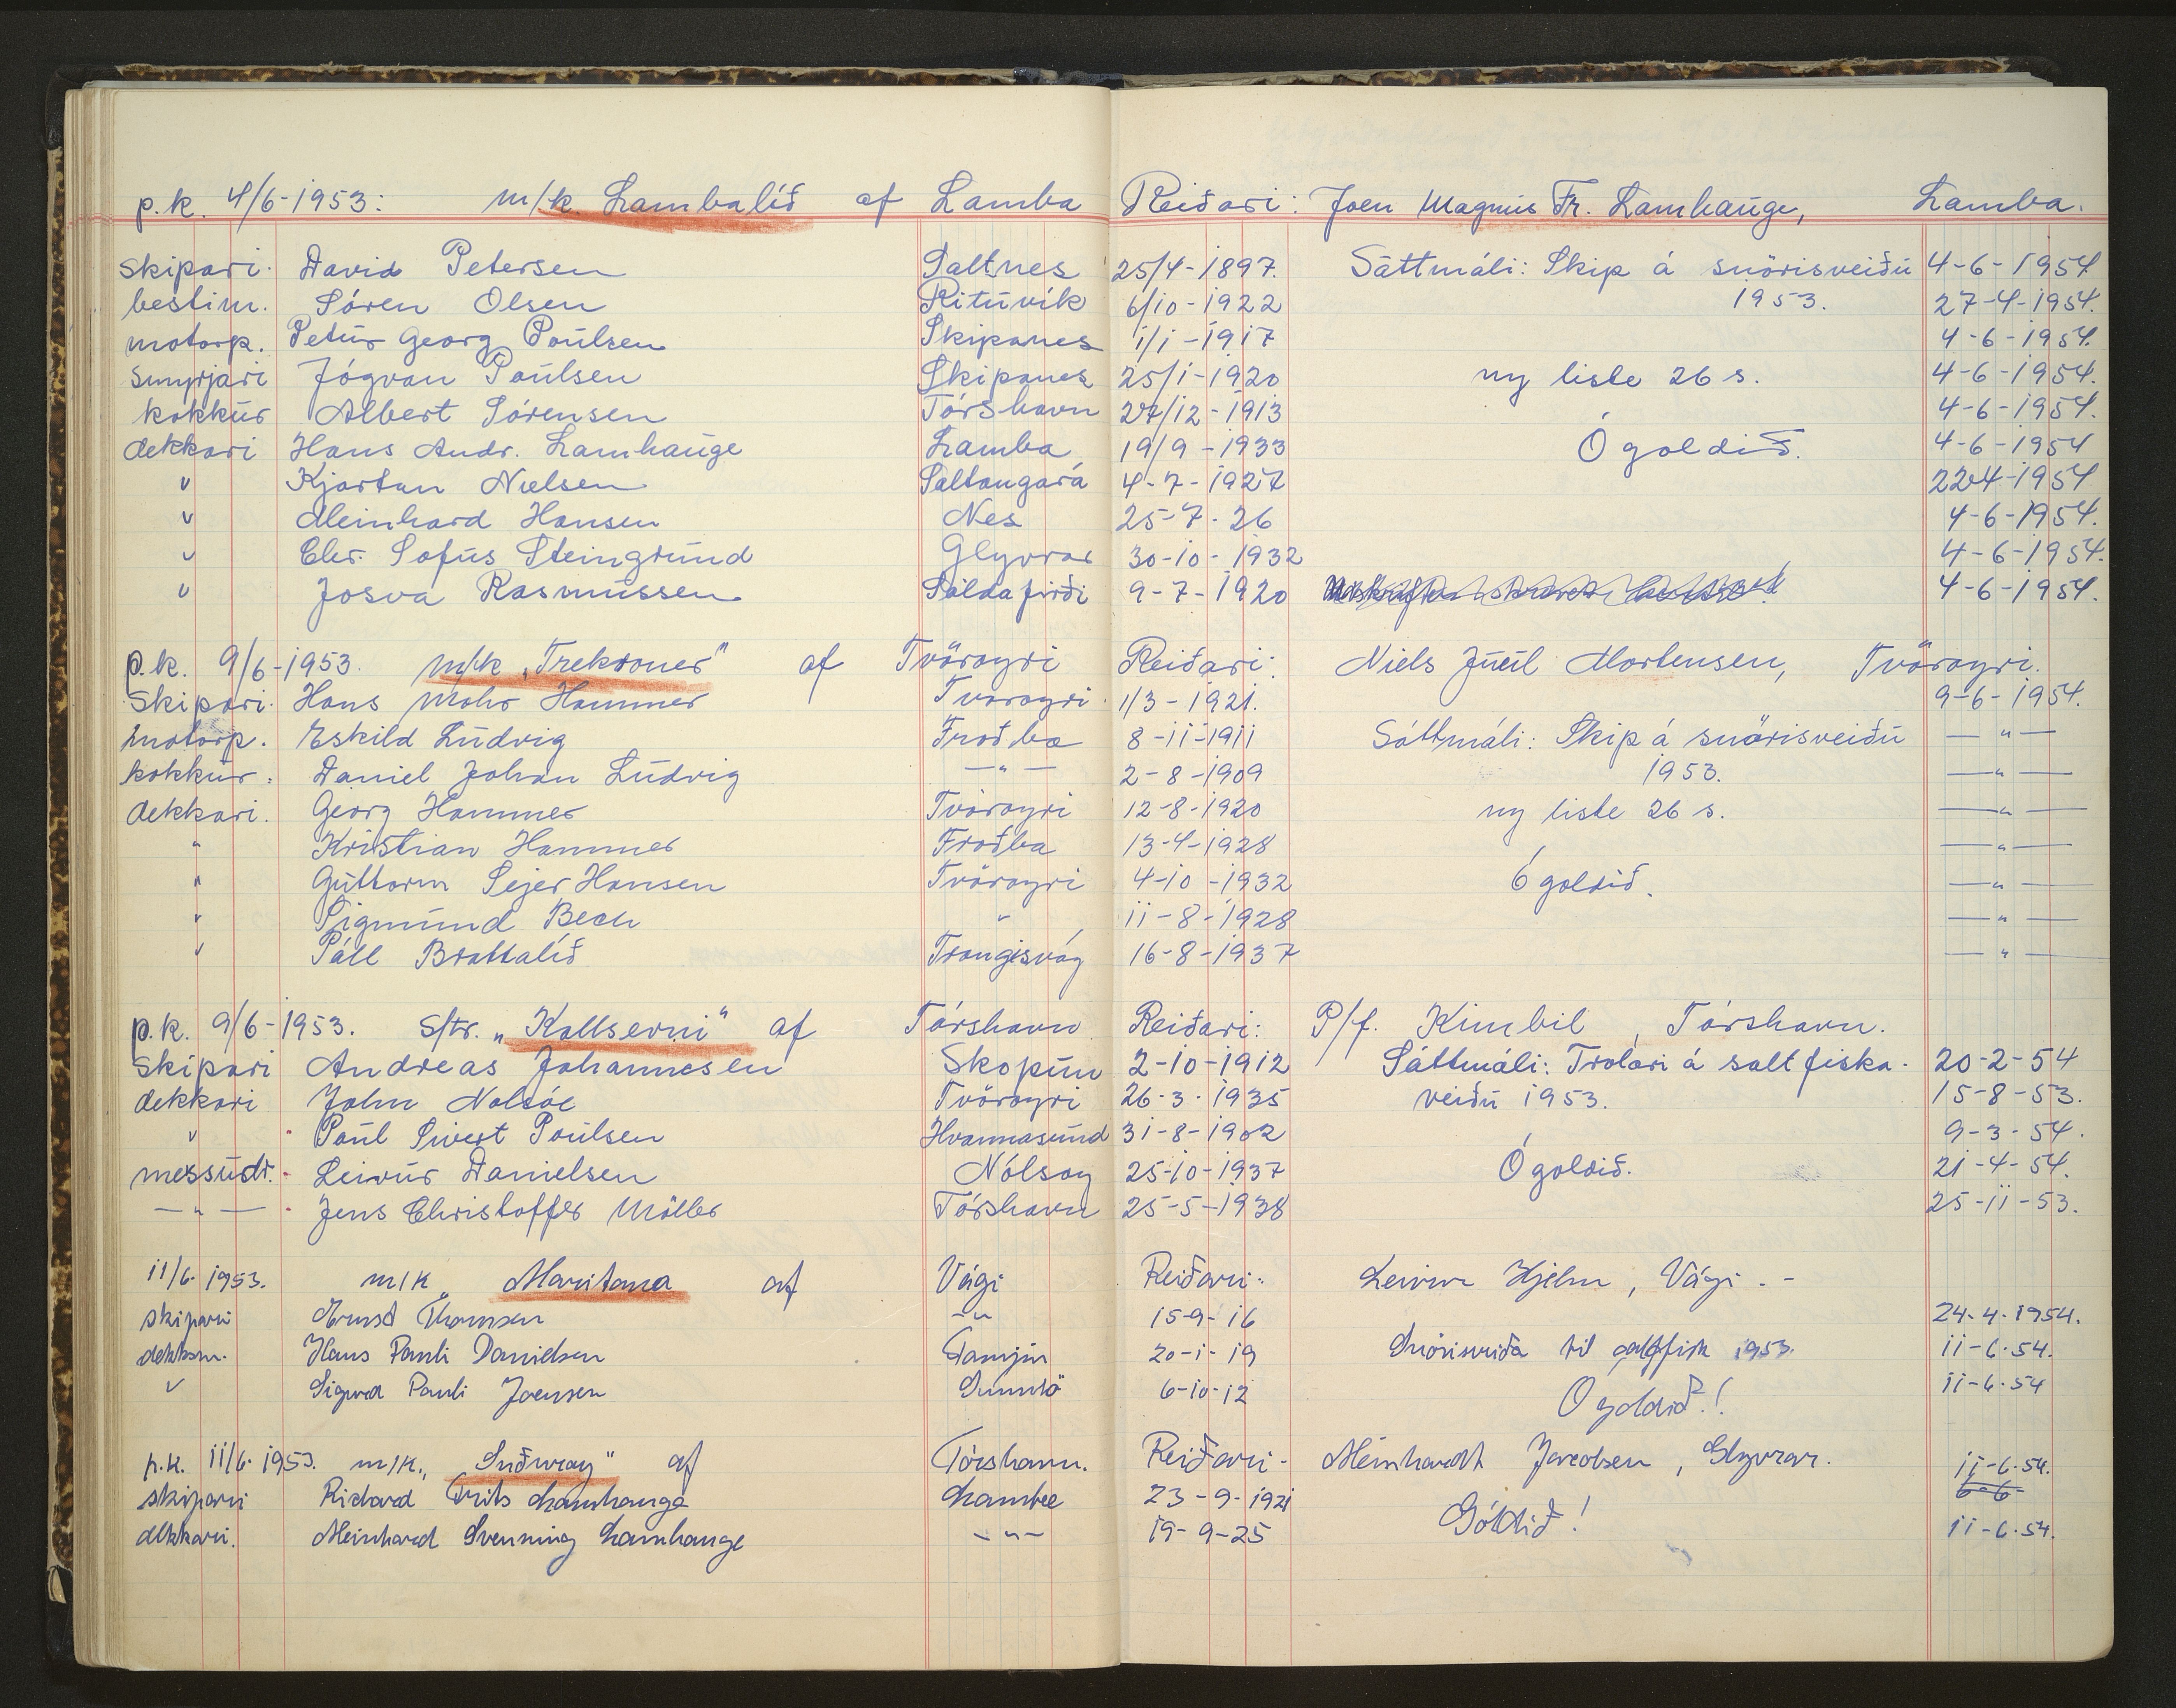 p.k. 4/6-1953: m/k. Lambalíð af Lamba Reiðari: Joen Magnus Fr. Lamhauge, Lamba.
skipari. David Petersen Saltnes 25/4-1897. Sáttmáli: Skip á snörisveiðu 4-6-1954
bestim. Sören Olsen Rituvík 6/10-1922 1953. 27-4-1954.
motorp. Petur Georg Poulsen Skipanes 1/1-1917 4-6-1954.
smyrjari Jógvan Poulsen Skipanes 25/1-1920 ny liste 26 s. 4-6-1954.
kokkur Albert Sörensen Tórshavn 27/12-1913 4-6-1954.
dekkari Hans Andr. Lamhauge Lamba 19/9-1933 Ógoldið. 4-6-1954
" Kjartan Nielsen Saltangará 4-7-1927 22-4-1954
" Meinhard Hansen Nes 25-7-26 4-6-1954.
" Chr. Sofus Steingrund Glyvrar 30-10-1932 4-6-1954.
" Josva Rasmussen Saldafirði 9-7-1920 4-6-1954.
p.k. 9/6-1953. m/k „Trekroner" af Tvöroyri Reiðari: Niels Juul Mortensen, Tvöroyri.
Skipari. Hans Mohr Hammer Tvöroyri 1/3-1921. 9-6-1954.
motorp. Eskild Ludvig Froðba 8-11-1911 Sáttmáli: Skip á snörisveiðu — " —
kokkur. Daniel Johan Ludvig — " — 2-8-1909 1953. — " —
dekkari. Georg Hammer Tvöroyri 12-8-1920 ny liste 26 s. — " —
" Kristian Hammer Froðba 13-4-1928 — " —
" Guttorm Sejer Hansen Tvöroyri 4-10-1932 Ógoldið. — " —
" Sigmund Bech " 11-8-1928 — " —
" Páll Brattalíð Trongisvág 16-8-1937 — " —
p.k. 9/6-1953. S/tr. „Kallsevni" af Tórshavn Reiðari: P/f. Kimbil, Tórshavn.
Skipari Andreas Johannesen Skopun 2-10-1912 Sáttmáli: Trolari á saltfiska- 20-2-54
dekkari John Nolsöe Tvöroyri 26-3-1935 veiðu 1953. 15-8-53.
" Paul Sivert Poulsen Hvannasund 31-8-1902 9-3-54.
messudr. Leivur Danielsen Nólsoy 25-10-1937 Ógoldið. 21-4-54.
— " — Jens Christoffer Möller Tórshavn 25-5-1938 25-11-53.
11/6. 1953. m/k „Maritana af Vági Reiðari: Leivur Hjelm, Vági. -
skipari Ernst Thomsen -"- 15-9-16 24-4-1954.
dekksm. Hans Pauli Danielsen Famjin 20-1-19 Snörisveiða til saltfisk 1953. 11-6-54.
" Sigurd Pauli Joensen Sumbö 6-10-12 Ógoldið.! 11-6-54
p.k. 11/6. 1953. m/k. „Suðuroy" af Tórshavn. Reiðari- Meinhardt Jacobsen, Glyvrar. 11-6-54.
skipari Richard Frits Lamhauge Lambe 23-9-1921 Góldið! 6-6
dekkari. Meinhard Svenning Lamhauge -"- 19-9-25 11-6-54.